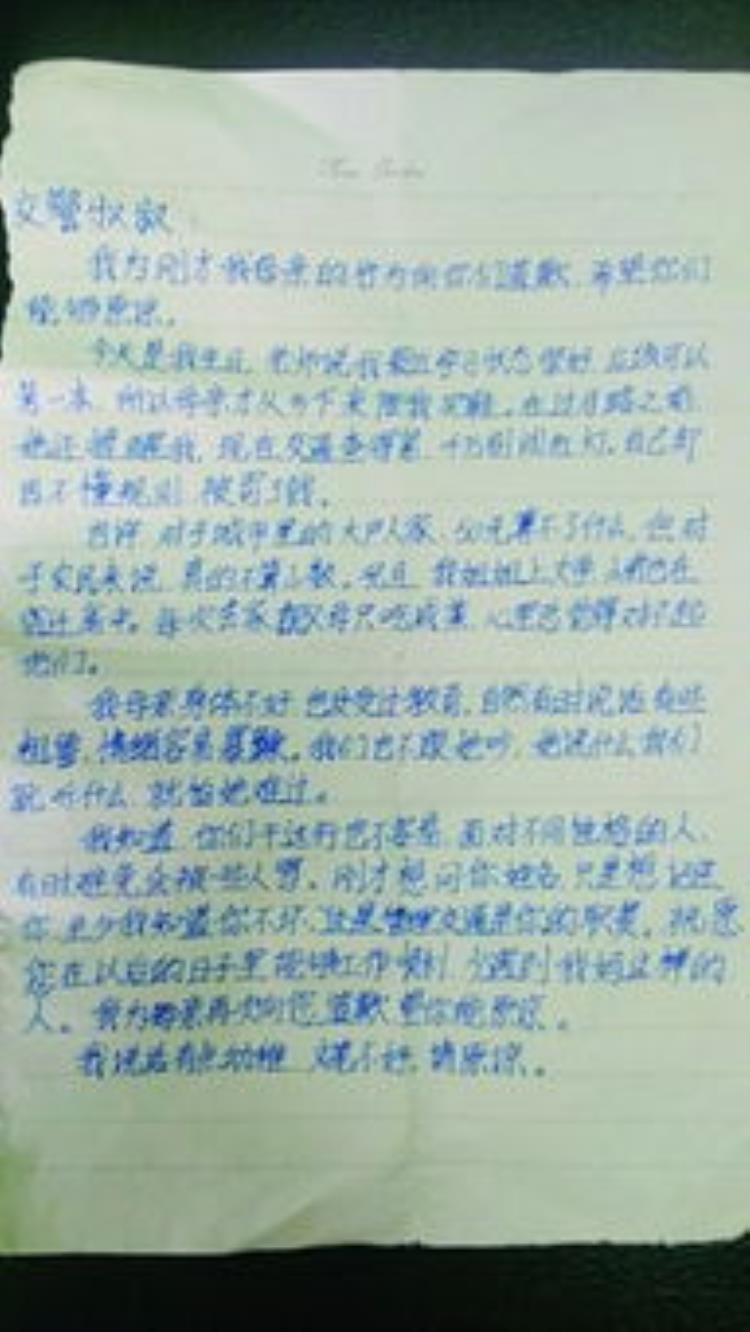 交警叔叔：
我为刚才我母亲的行为向你们道歉，希望你们
能够原谅。
今天是我生日，老师说我最近学习状态挺好，应该可以
第一本，所以母亲才从乡下来陪我买鞋。在过马路之前
她还提醒我，现在交通查得紧，千万别闯红灯。自己却
因不懂规则，被罚了钱。
也许对于城市里的大户人家，50元算不了什么，但对
于农民来说，真的不算小数。况且，我姐姐上大学，我也在
临近高考。每次去家都父母只吃咸菜，心里总觉得对不起
他们。
我母亲身体不好，也没受过教育，自然有时说话有些
粗鲁，情绪容易暴躁。我们也不跟她吵，她说什么我们
就听什么，就怕她难过。
我知道，你们干这行也不容易，面对不同性格的人，
有时难受会被一些人骂。刚才想问你姓名，只是想记住
你，至少我知道你不坏，这是管理交通是你的职责。祝愿
您在以后的日子里能够工作顺利，少遇到我妈这样的
人。我为母亲再次向您道歉，望你能原谅。
我说话有点幼稚，文笔不好，请原谅。